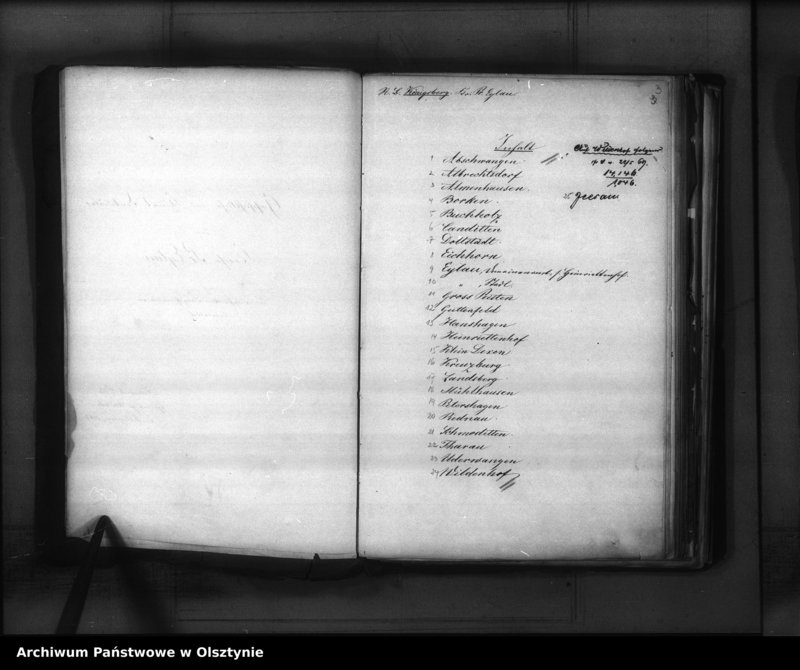 Kr. Pr. Eylau
3
Inhalt
1 Abschwangen
2 Albrechtsdorf
3 Almenhausen
4 Borken
5 Buchholz
6 Canditten
7 Dollstädt
8 Eichhorn
9 Eylau, Domainenamt, s/ Henriettenhof
10 " , Stadt
11 Gross Peisten
12 Guttenfeld
13 Hanshagen
14 Heinriettenhof
15 Klein Dexen
16 Kreuzburg
17 Landsberg
18 Mühlhausen
19 Petershagen
20 Rednau
21 Schmoditten
22 Tharau
23 Uderwangen
24 Wildenhof
1046.
25
Archiwum Państwowe w Olsztynie